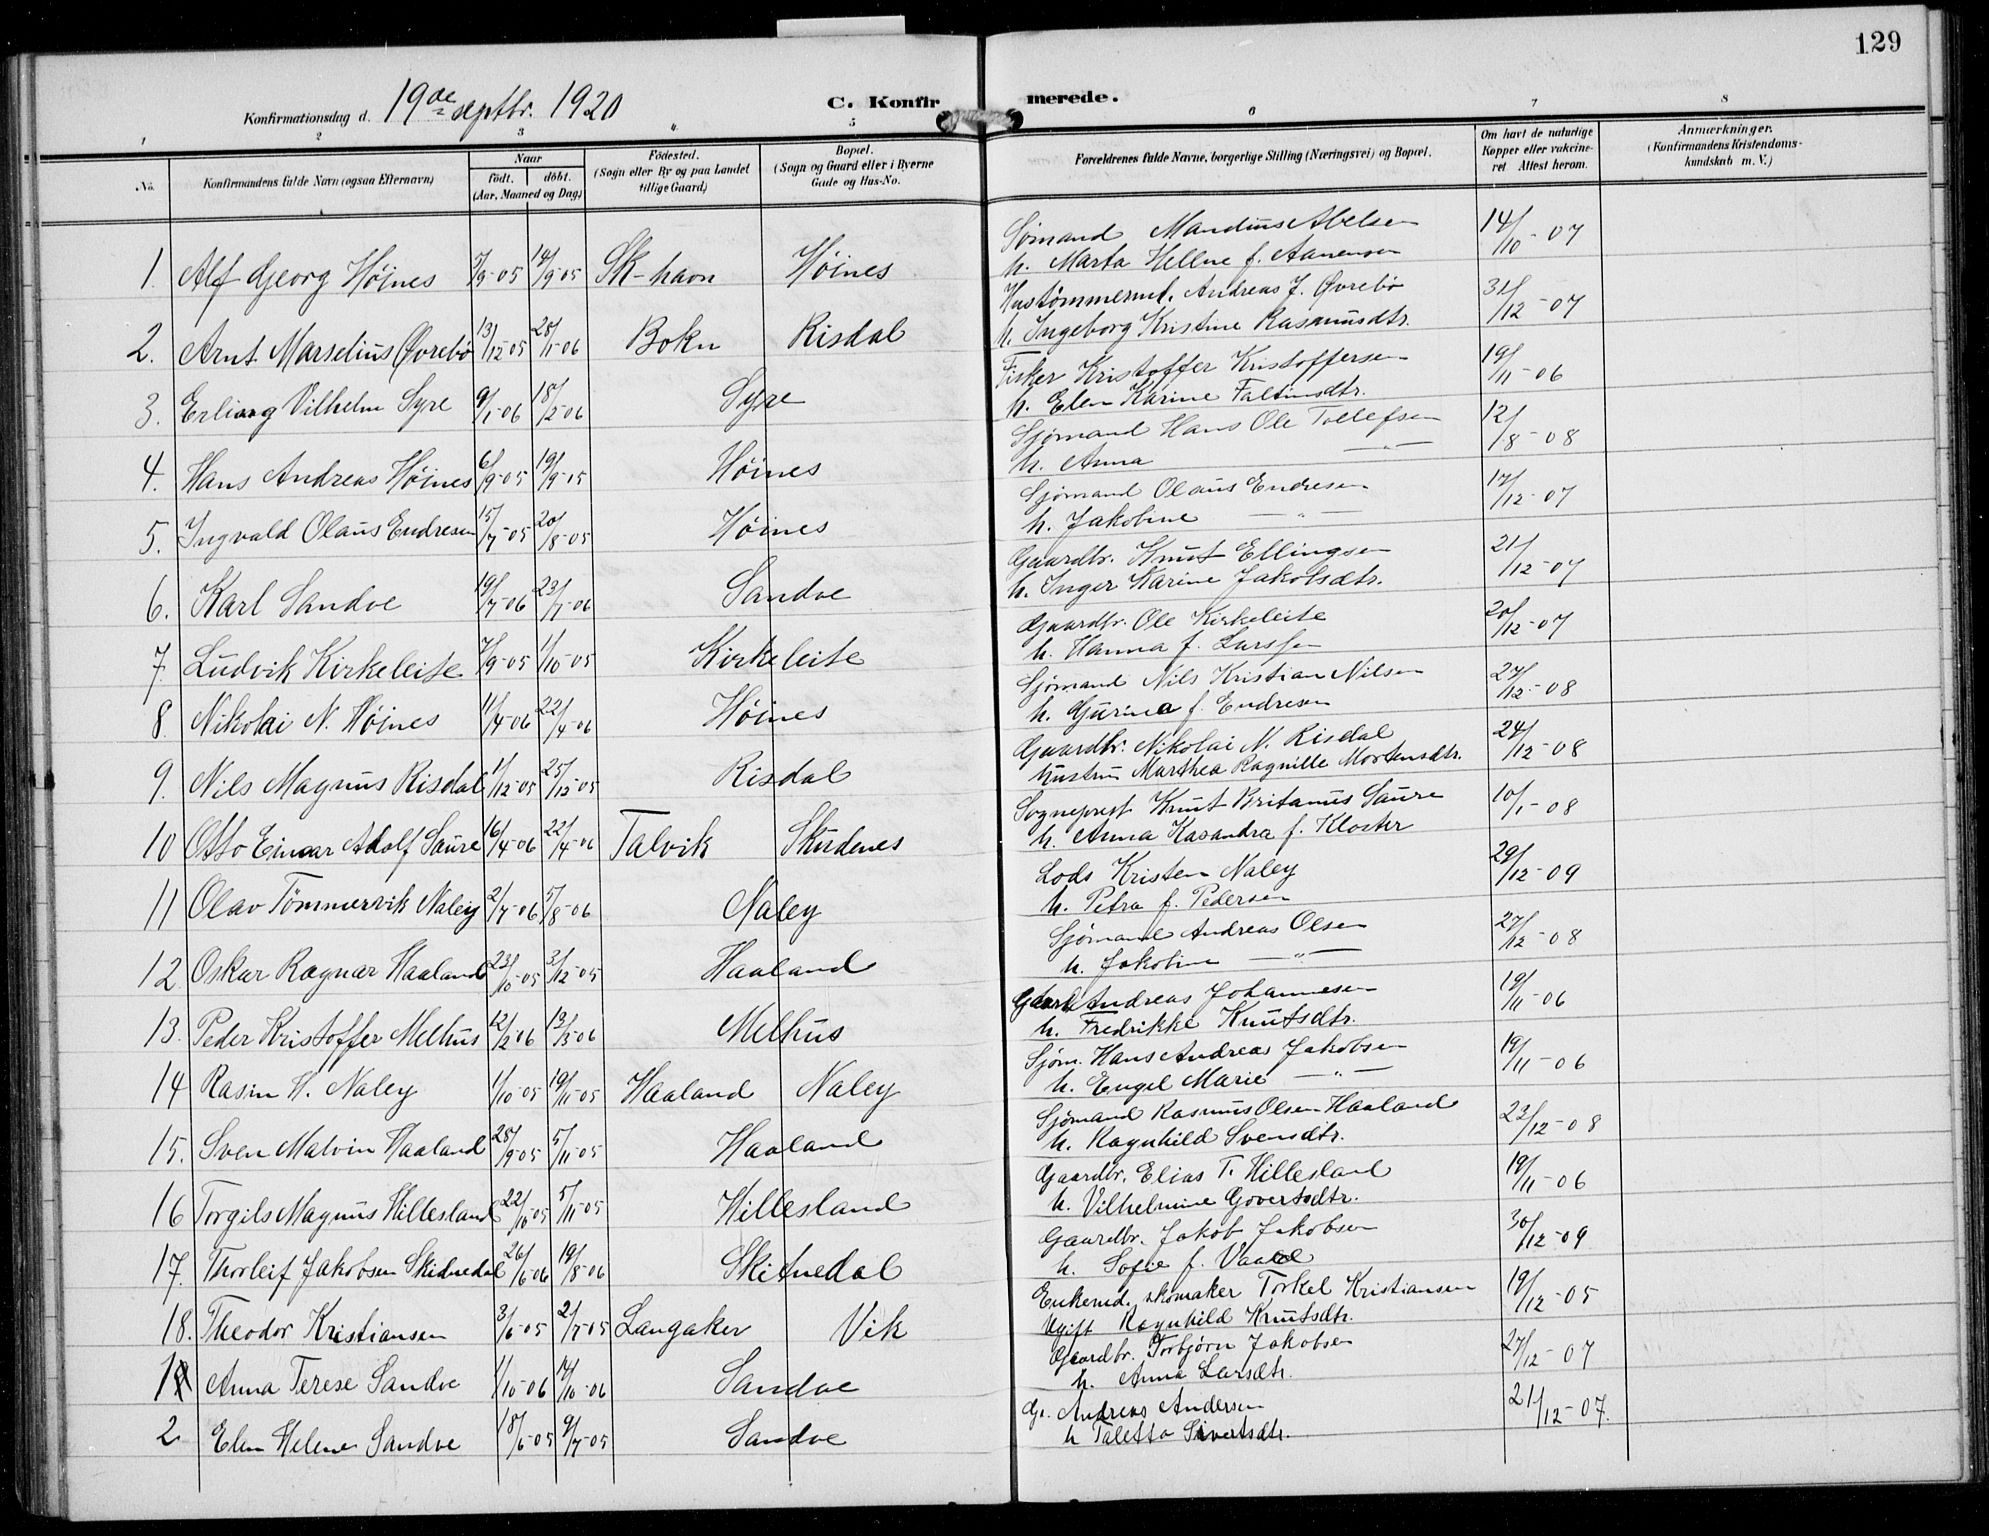 129
Konfirmationsdag d. 19de septbr. 1920
C. Konfirmerede.
1 2 3 " 5 6 7 8
No.
Konfirmandens fulde Navn (ogsaa Efternavn)
Naar
født. døbt.
(Aar, Maaned og Dag)
Fødested.
(Sogn eller By og paa Landet
tillige Gaard)
Bopæl.
(Sogn og Gaard eller i Byerne
Gade og Hus-No.
Forældrenes fulde Navne, borgerlige Stilling (Næringsvei) og Bopæl.
Om havt de naturlige
Kopper eller vakcine-
ret Attest herom.
Anmærkninger.
(Konfirmandens Kristendoms-
kundskab m. V.)
1. Alf Georg Høines 5/9-05 14/9-05 Sk-havn Høines Sømand Mandius Abelsen 14/10-07
h. Marta Helene f. Aanensen
2. Arnt Marselius Øvrebø 13/12-05 28/1-06 Bokn Risdal Hustømmermd. Andreas J. Øvrebø 31/12-07
h. Ingeborg Kristine Rasmusdtr.
3. Erling Vilhelm Syre 9/1-06 18/2-06 Syre Fisker Kristoffer Kristoffersen 19/11-06
h. Elen Karine Faltinsdtr.
4. Hans Andreas Høines 6/9-05 19/9-05 Høines Sjømand Hans Ole Tollefsen 12/8-08
h. Anna — " —
5. Ingvald Olaus Endresen 15/7-05 20/8-05 Høines Sjømand Olaus Endresen 17/12-07
h. Jakobine — " —
6. Karl Sandve 19/7-06 23/7-06 Sandve Gaardbr. Knut Ellingsen 21/12-07
h. Inger Karine Jakobsdtr.
7. Ludvik Kirkeleite 7/9-05 1/10-05 Kirkeleite Gaardbr. Ole Kirkeleite 20/12-07
h. Hanna f. Larssen
8. Nikolai N. Høines 11/4-06 22/4-06 Høines Sjømand Nils Kristian Nilsen 27/12-08
h. Gurina f. Endresen
9. Nils Magnus Risdal 11/12-05 25/12-05 Risdal Gaardbr. Nikolai N. Risdal 24/12-08
hustru Marthea Ragnille Mortensdtr.
10 Otto Einar Adolf Saure 16/4-06 22/4-06 Talvik Skudenes Sogneprest Knut Britanus Saure 10/1-08
h. Anna Kasandra f. Kloster
11 Olav Tømmervik Naley 2/7-06 5/8-06 Naley Lods Kristen Naley 29/12-09
h. Petra f. Pedersen
12 Oskar Ragnar Haaland 23/10-05 3/12-05 Haaland Sjømand Andreas Olsen 27/12-08
h. Jakobine — " —
13. Peder Kristoffer Melhus 12/2-06 13/3-06 Melhus Gaard Andreas Johannesen 19/11-06
h. Fredrikke Knutsdtr.
14 Rasm H. Naley 1/10-05 19/11-05 Haaland Naley Sjøm. Hans Andreas Jakobsen 19/11-06
h. Engel Marie — " —
15. Sven Malvin Haaland 28/9-05 5/11-05 Haaland Sjømand Rasmus Olsen Haaland 23/12-08
h. Ragnhild Svensdtr.
16 Torgils Magnus Hillesland 22/10-05 5/11-05 Hillesland Gaardbr. Elias T. Hillesland 19/11-06
h. Vilhelmine Govertsdtr.
17. Thorleif Jakobsen Skidnedal 26/6-06 19/8-06 Skitnedal Gaardbr. Jakob Jakobsen 30/12-09
h. Sofie f. Vaage
18. Theodor Kristiansen 3/6-05 2/7-05 Langaker Vik Enkemd. skomaker Torkel Kristiansen 19/12-05
Ugift Ragnhild Knutsdtr.
1 Anna Terese Sandve 1/10-06 14/10-06 Sandve Gaardbr. Torbjørn Jakobsen 27/12-07
h. Anna Larsdtr.
2 Elen Helene Sandve 18/6-05 9/7-05 Sandve G. Andreas Andersen 21/12-07.
h Taletta Sivertsdtr.